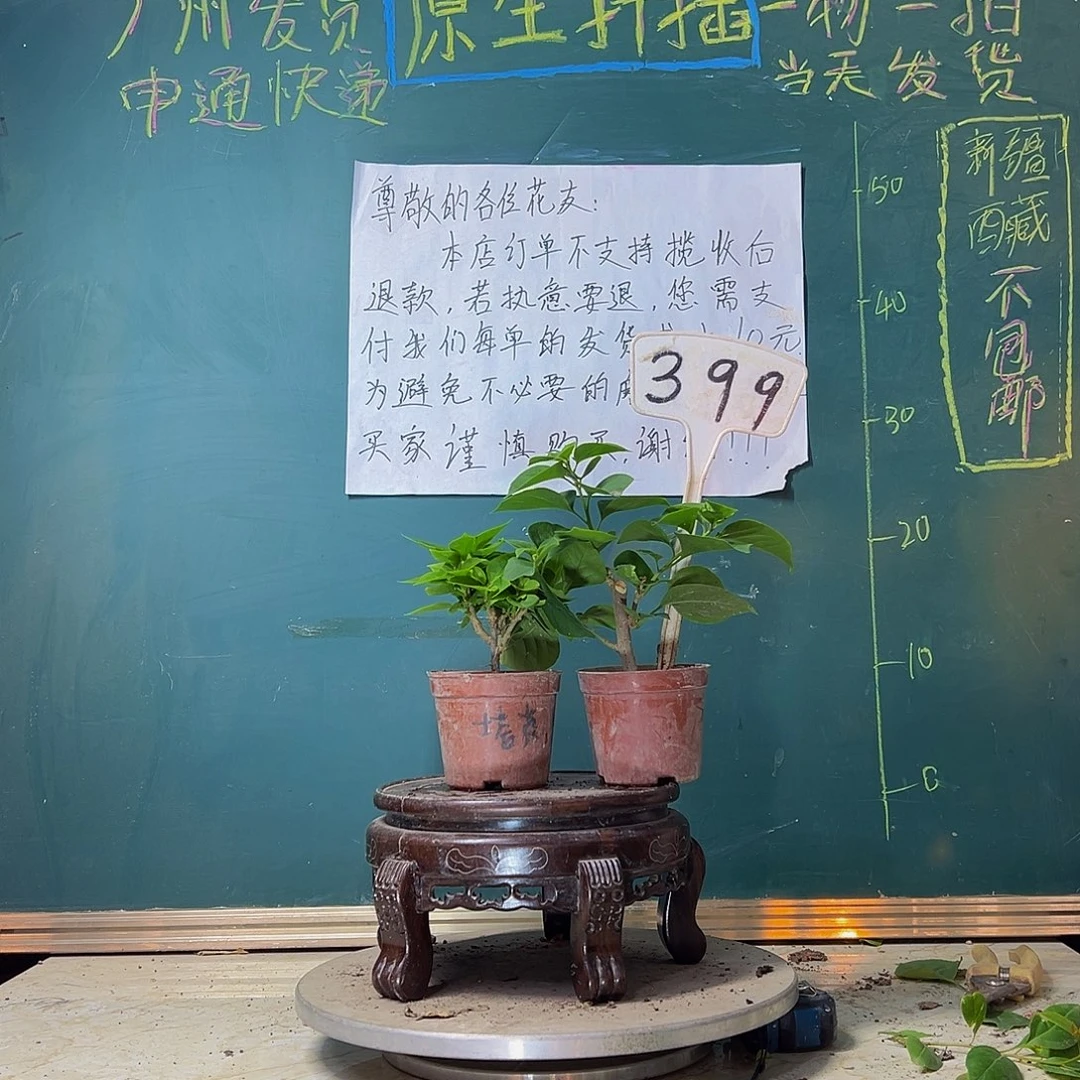 广州发货
原生扦插
一物一拍
申通快递
当天发货
新疆
西藏
不包邮
尊敬的各位花友:
本店订单不支持揽收后
退款,若执意要退,您需支
付我们每单的发货 10元
为避免不必要的
买家谨慎购买,谢!!!
399
50
40
30
20
10
0